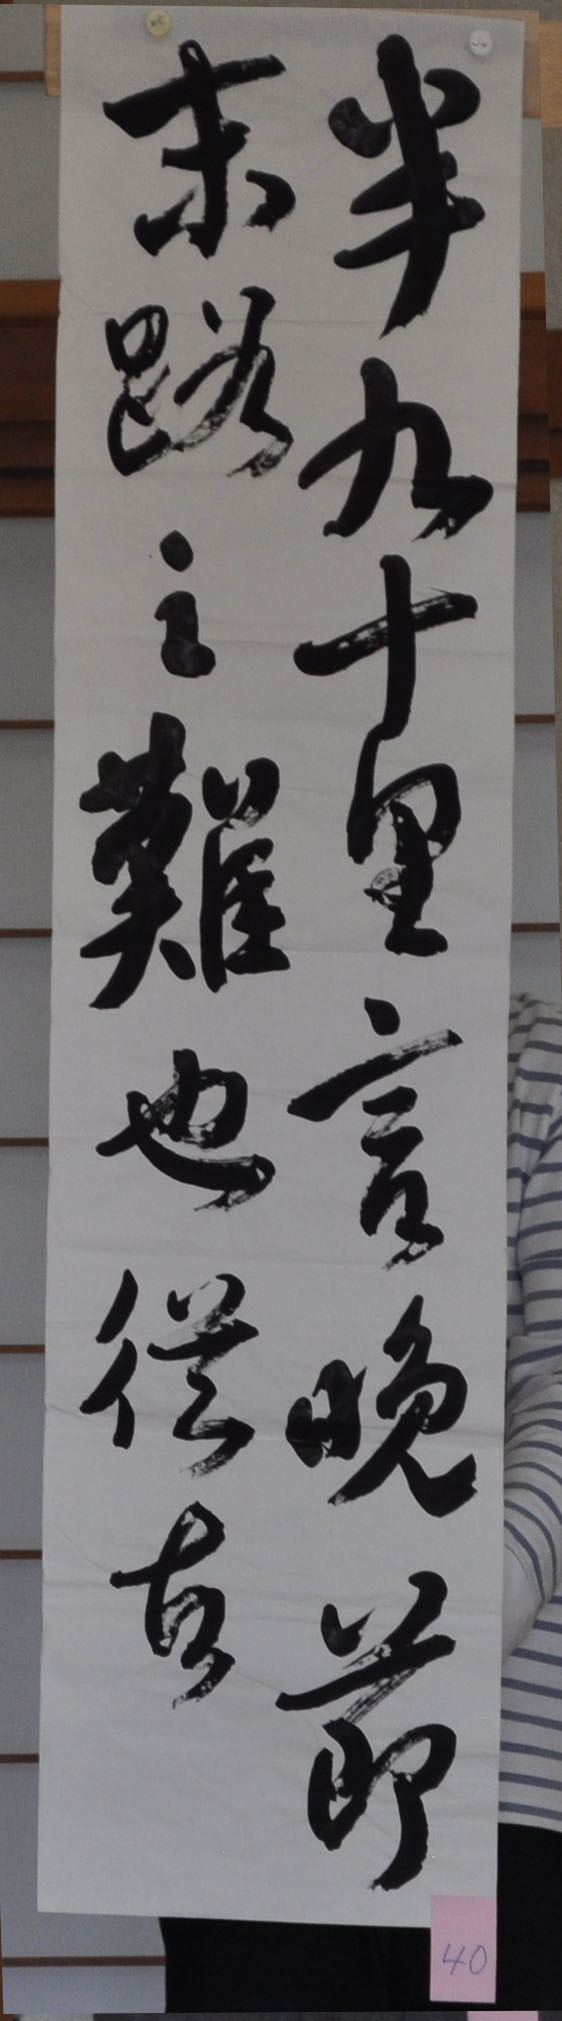 半九十里言晩節
末路之難也從古
40